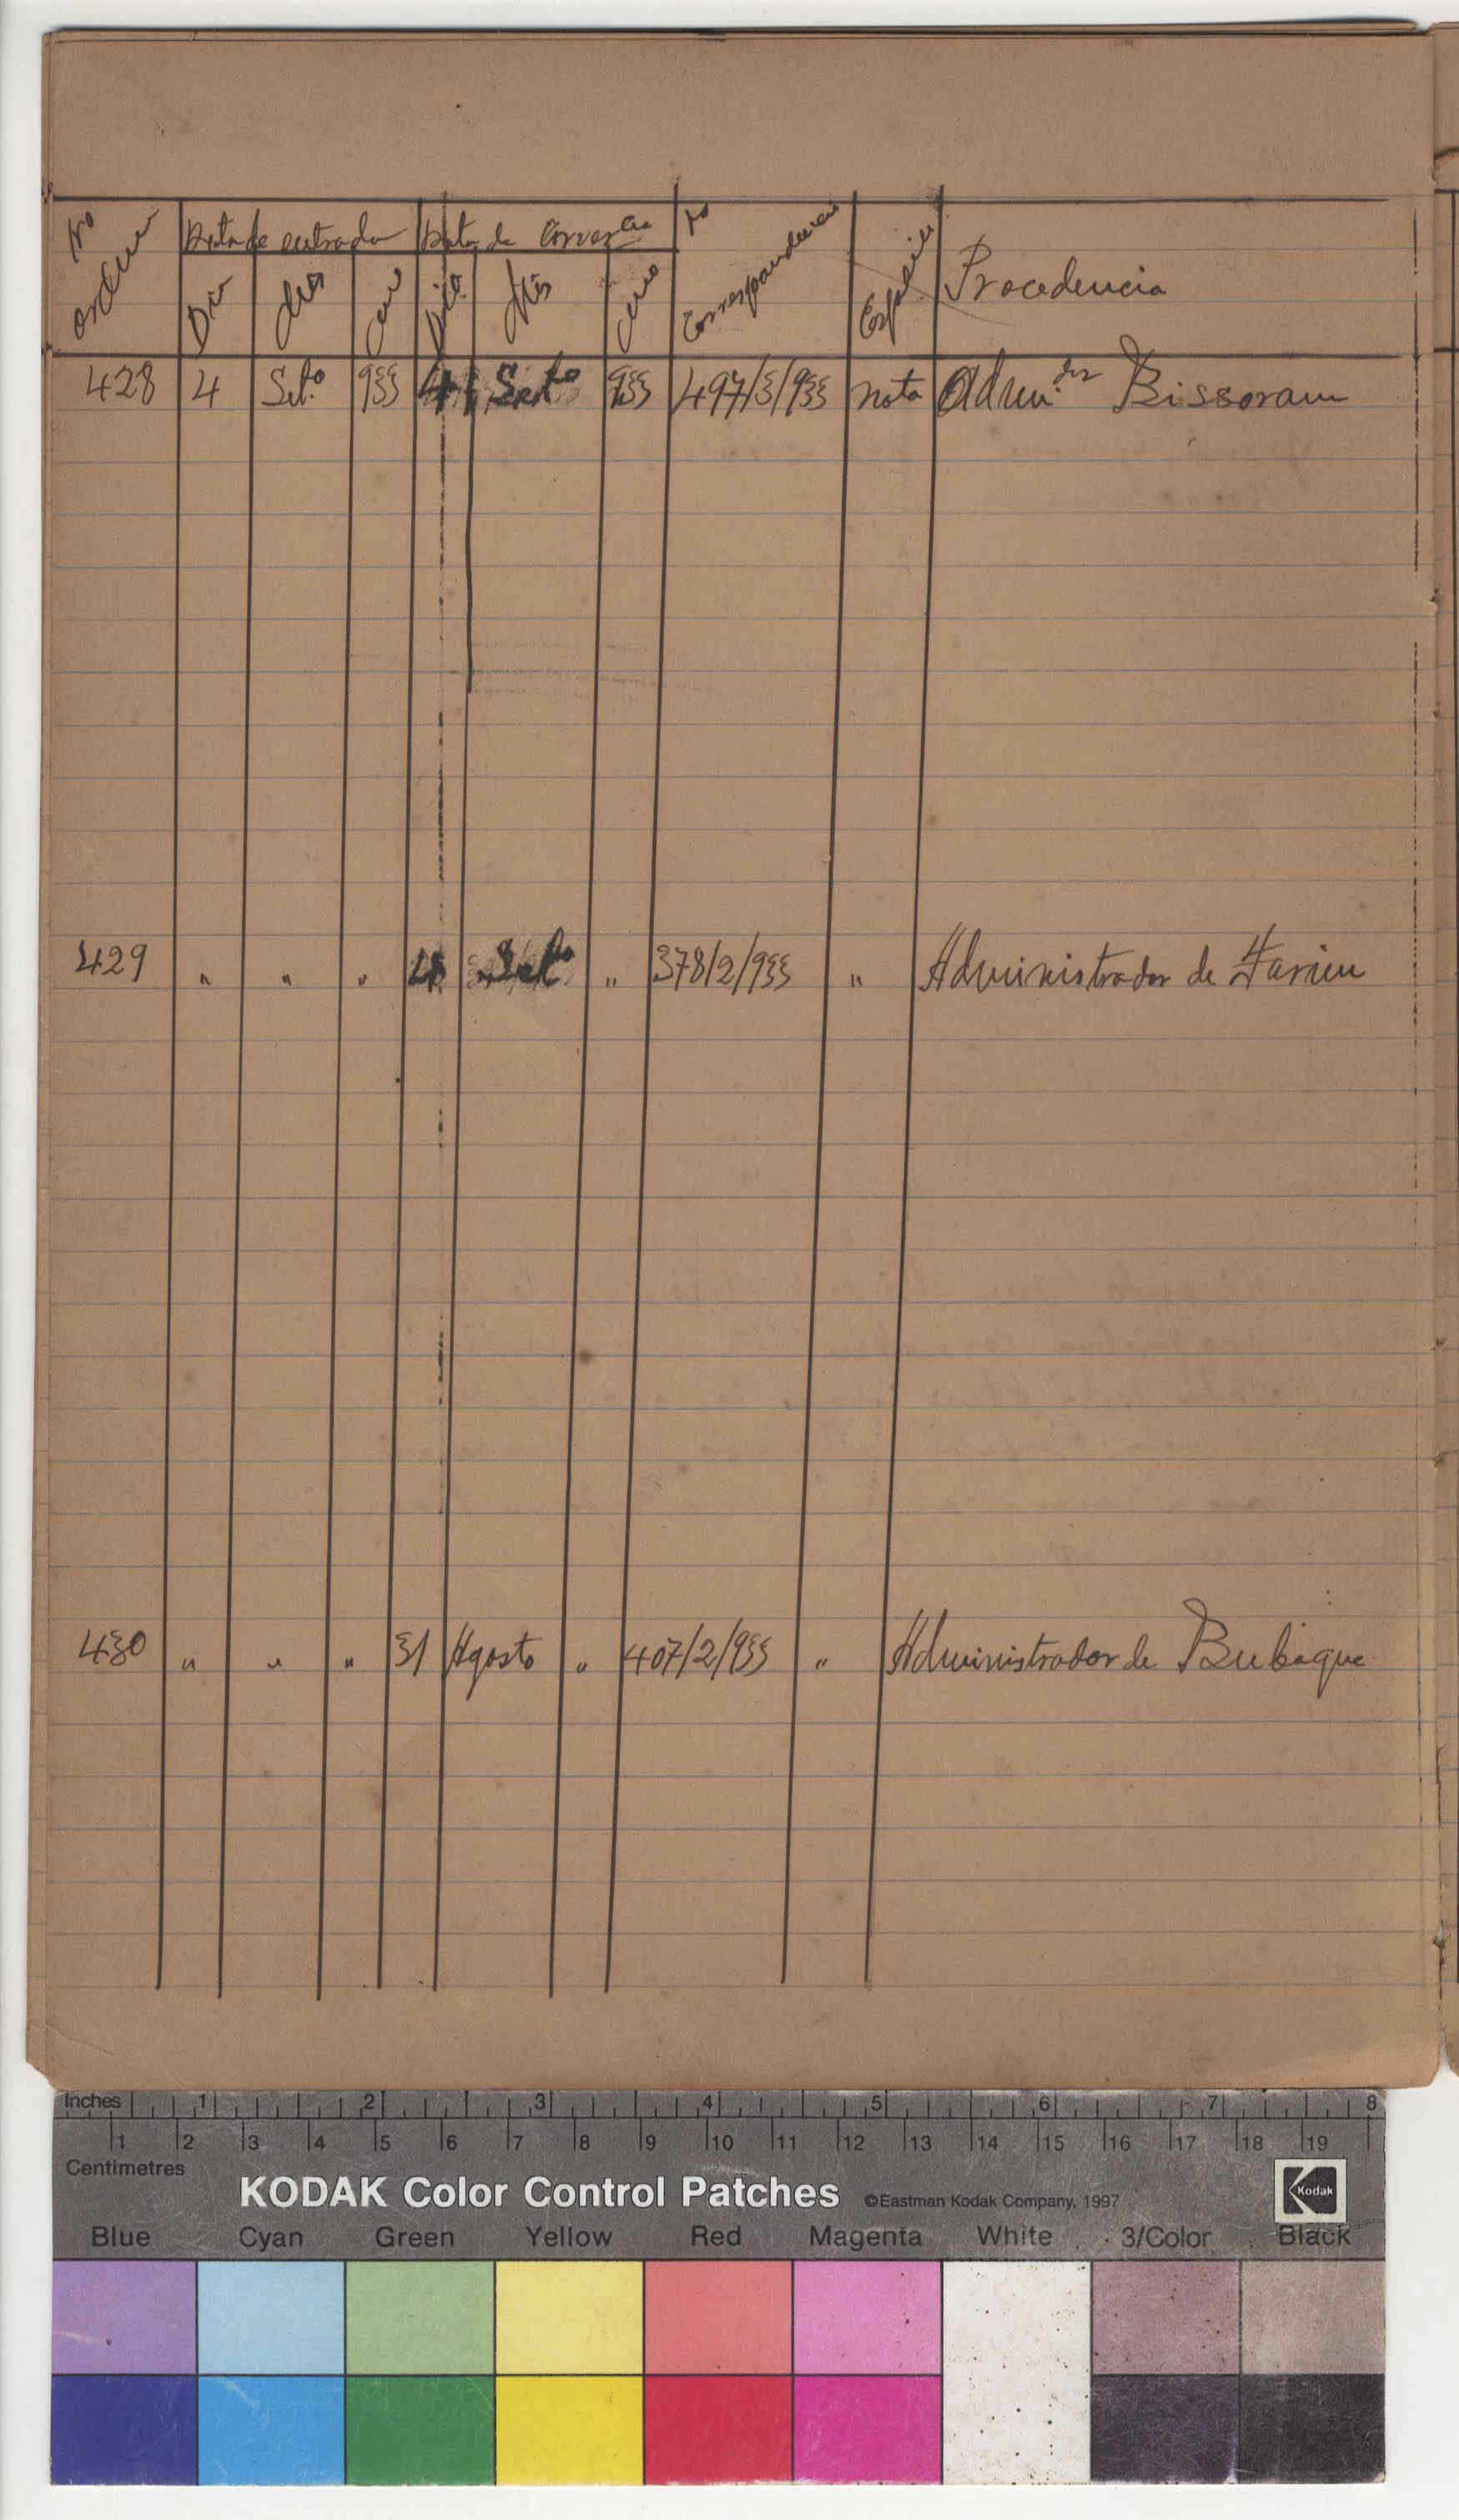 No ordem Data de entrada Data da Corresp.cia No Correspondencia Especie Procedencia
Dia Mês Ano Dia Mês Ano
428 4 Set.º 933 4 Setº 933 497/3/933 nota Adm.dor Bissoram
429 " " " 4 Setº " 378/2/933 " Administrador de Farim
430 " " " 31 Agosto " 407/2/933 " Administrador de Bubaque
Inches 1 2 3 4 5 6 7 8
1 2 3 4 5 6 7 8 9 10 11 12 13 14 15 16 17 18 19
Centimetres
KODAK Color Control Patches ©Eastman Kodak Company, 1997 Kodak
Blue Cyan Green Yellow Red Magenta White 3/Color Black